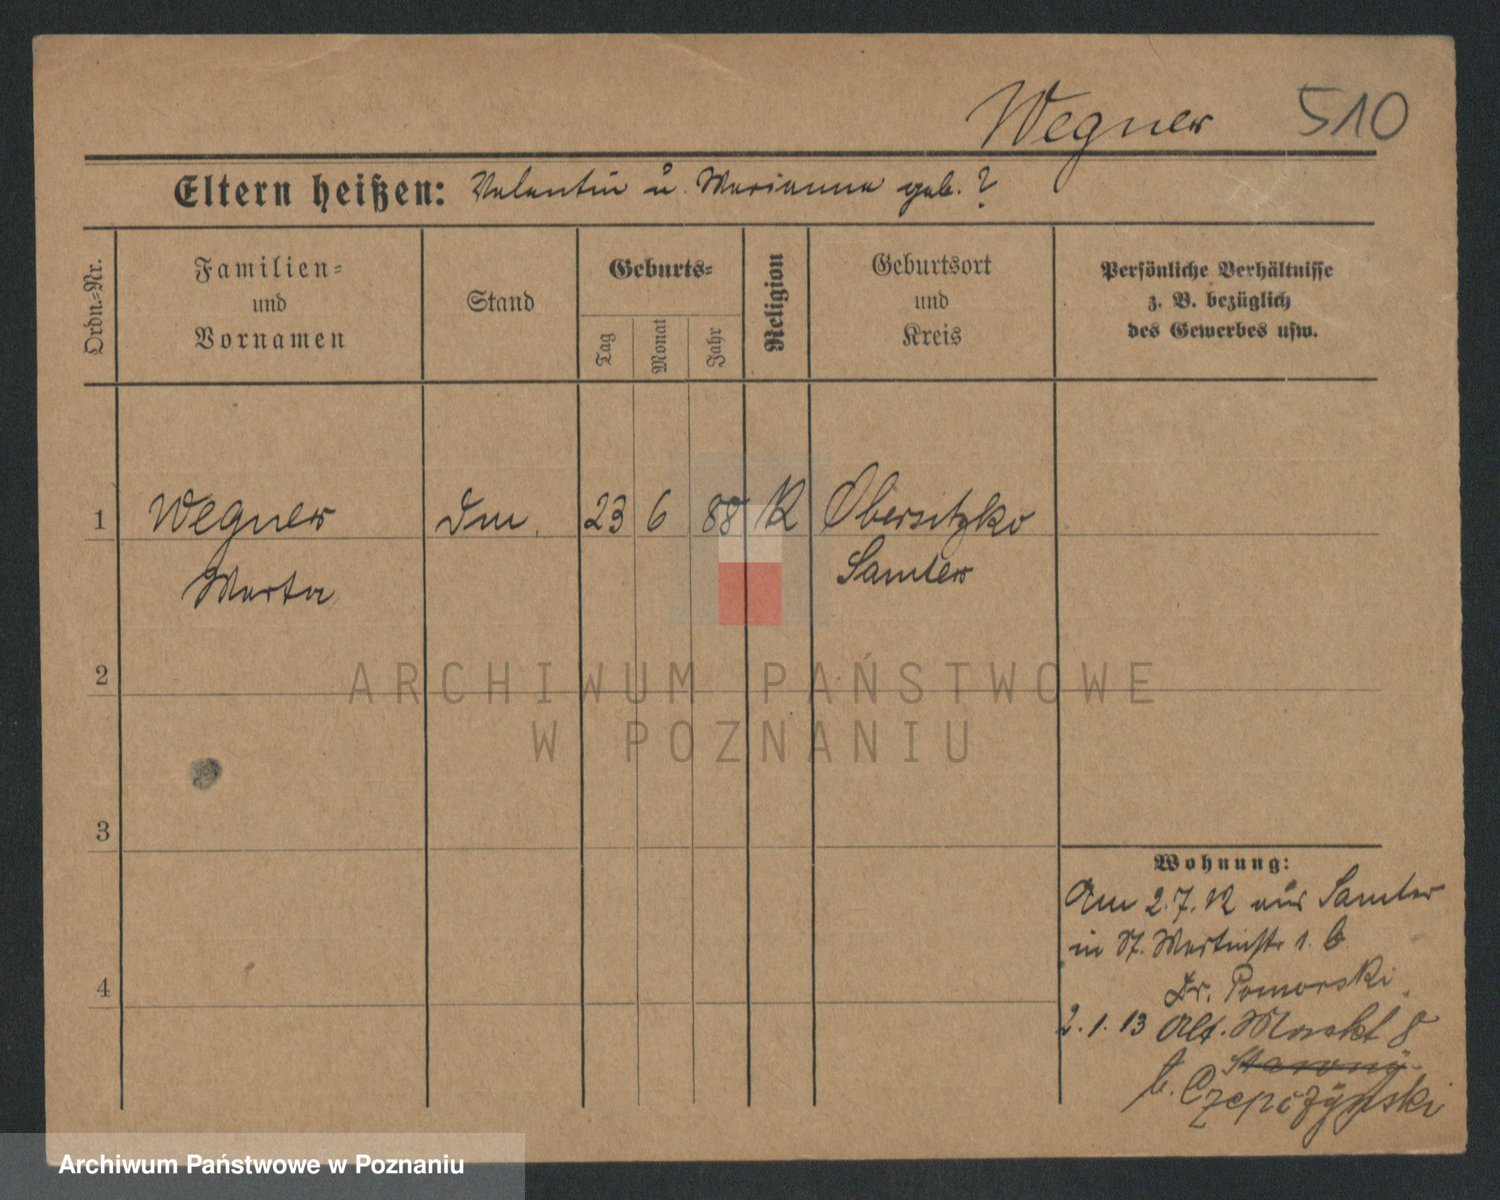 Wegner 510
Eltern heißen: Valentin u. Marianna geb. ?
Ordn.=Nr.
Familien=
und
Vornamen
Stand
Geburts=
Tag
Monat
Jahr
Religion
Geburtsort
und
Kreis
Persönliche Verhältnisse
z. B. bezüglich
des Gewerbes usw.
1 Wegner 23 6 88 K Obersitzko
Marta Samter
2
ARCHIWUM PAŃSTWOWE
W POZNANIU
3
4
Wohnung:
Am 2.7.12 aus Samter
in St. Martinstr 1. b
Dr. Pomorski.
2.1.13 Alt. Markt 8
b. Czepczyński
Archiwum Państwowe w Poznaniu